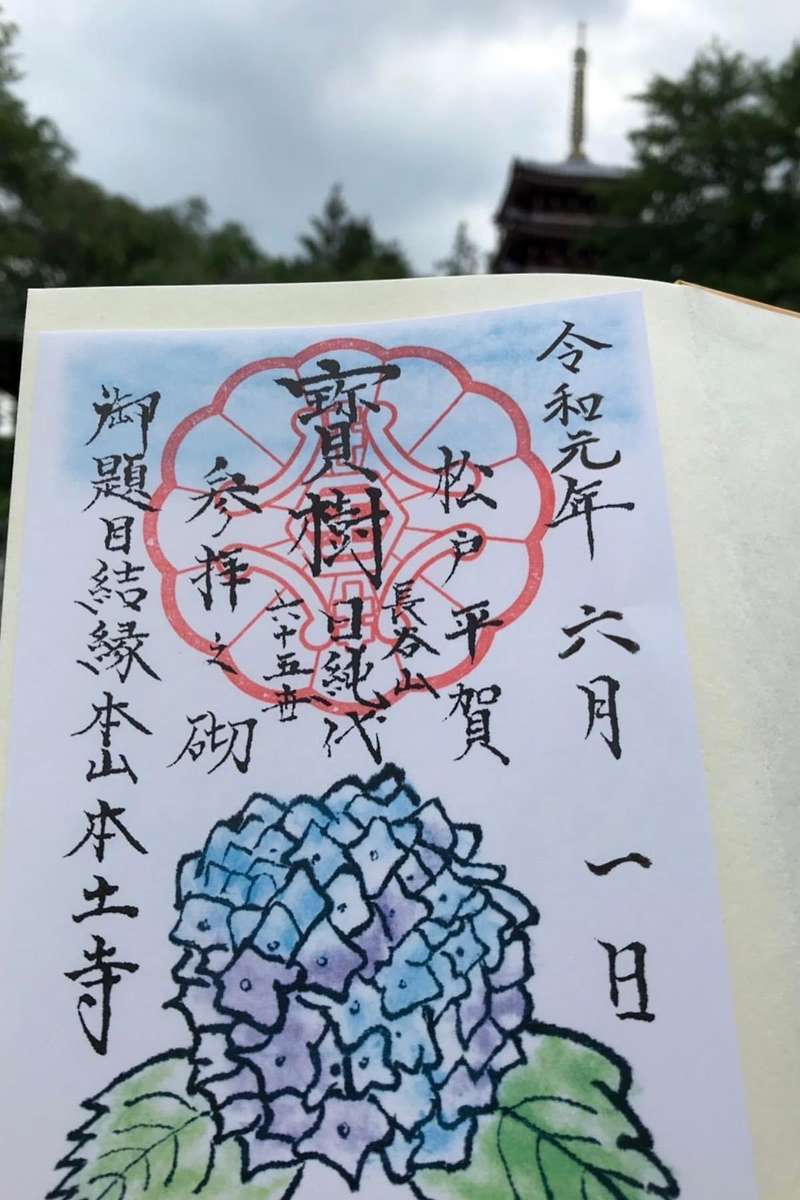 令和元年 六月 一日
松戸平賀
長谷山
寶樹
日純代
六十五世
参拝之砌
御題目結縁本山本土寺